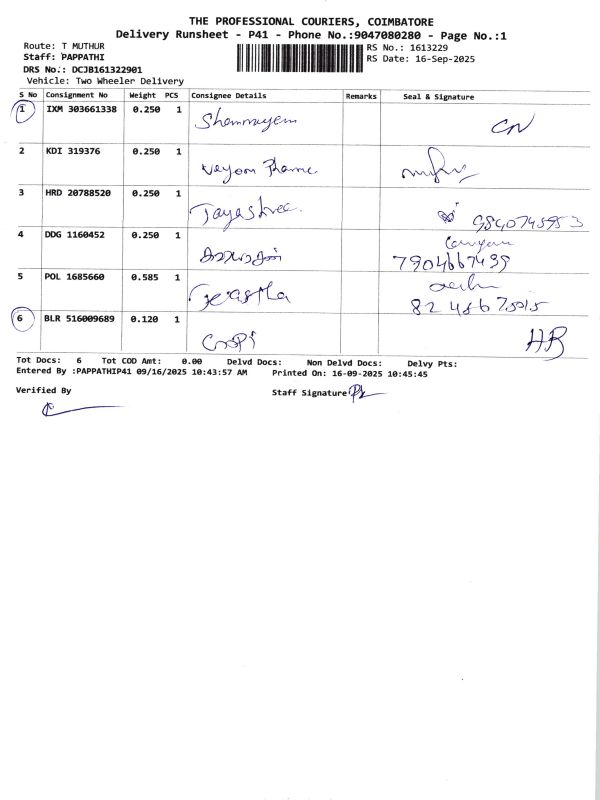 THE PROFESSIONAL COURIERS, COIMBATORE
Delivery Runsheet - P41 - Phone No.:9047080280 - Page No.:1
Route: T MUTHUR RS No.: 1613229
Staff: PAPPATHI RS Date: 16-Sep-2025
DRS No.: DCJB161322901
Vehicle: Two Wheeler Delivery
S No Consignment No Weight PCS Consignee Details Remarks Seal & Signature
1 IXM 303661338 0.250 1
CN
2 KDI 319376 0.250 1
3 HRD 20788520 0.250 1
Jayashree.
4 DDG 1160452 0.250 1
7904667439
5 POL 1685660 0.585 1
6 BLR 516009689 0.120 1
HB
Tot Docs: 6 Tot COD Amt: 0.00 Delvd Docs: Non Delvd Docs: Delvy Pts:
Entered By :PAPPATHIP41 09/16/2025 10:43:57 AM Printed On: 16-09-2025 10:45:45
Verified By Staff Signature